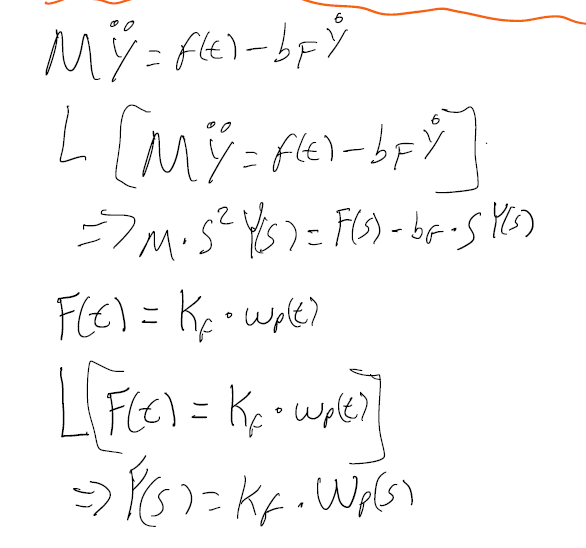 Mÿ = f(t) - b_F ẏ
L [Mÿ = f(t) - b_F ẏ]
=> M · S² Y(s) = F(s) - b_F · S Y(s)
F(t) = K_F · w_p(t)
L [F(t) = K_F · w_p(t)]
=> F(s) = K_F · W_p(s)